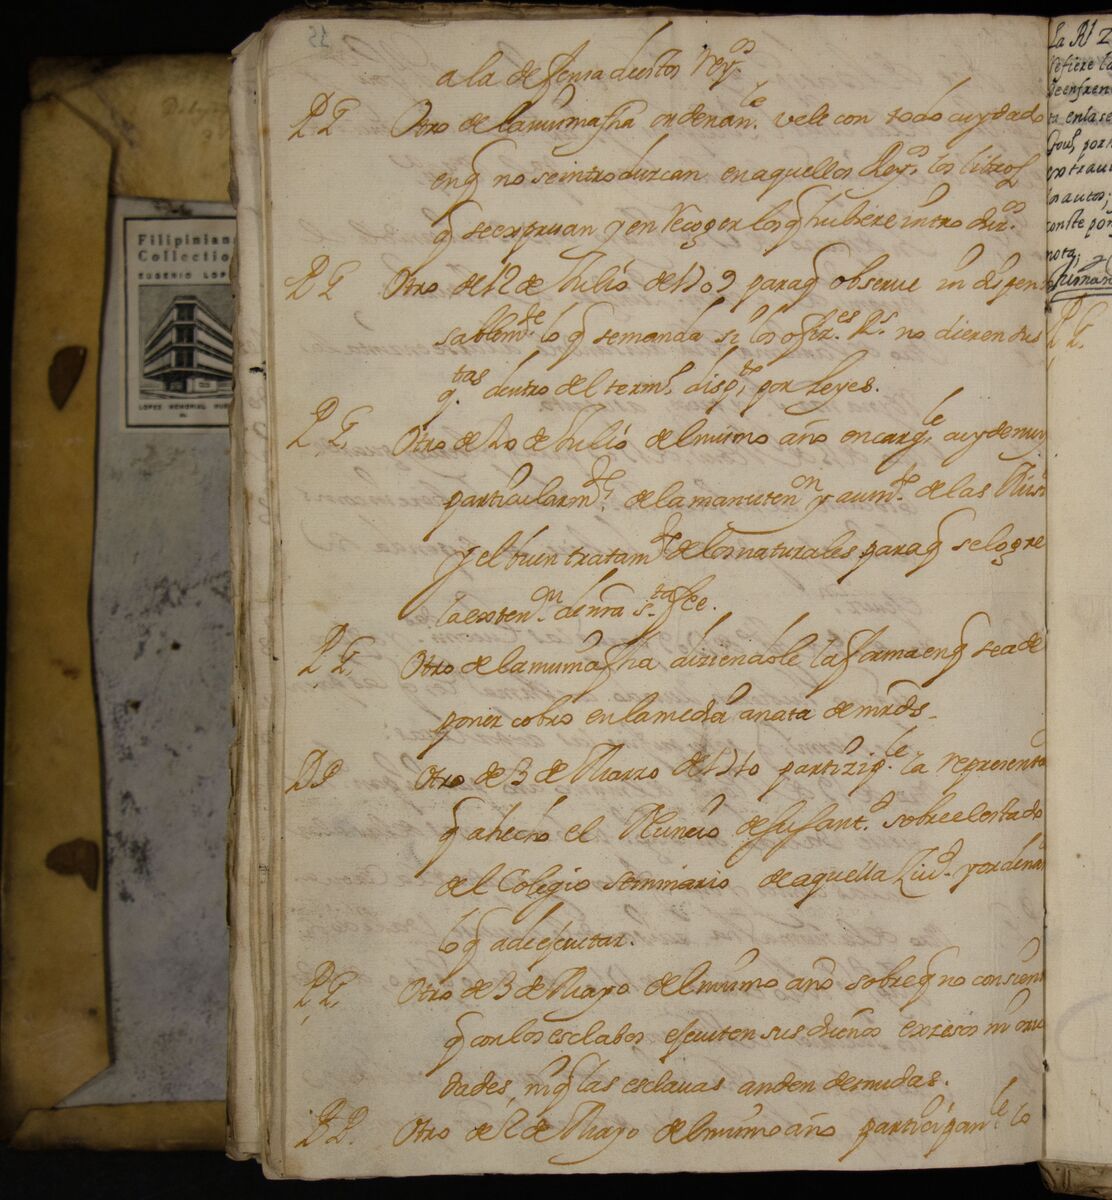 a la defensa de estos Rey.os
P P Otro de la misma fha ordenan.le vele con todo cuydado
en q no se introduzcan en aquellos Rey.os los libros
q se expresan y en recoger los q hubiere introduz.cos
P P Otro de 12 de Julio de 1709 para q observe indispen
sablem.te lo q se manda si los ofiz.es R.s no dieren sus
q.tas dentro del term.o disp.to por leyes.
P P Otro de 20 de Julio del mismo año encarg.le cuyde muy
particularm.te de la manuten.on y aum.to de las
y el buen tratam.to de los naturales para q se logre
la exten.on de nra s.ta fee.
P P Otro de la misma fha diziendole la forma en q se a de
poner cobro en la media anata de mrds
D P Otro de 3 de Marzo de 1710 partizip.le la represent
q a hecho el Nuncio de su sant.d sobre el estado
del Colegio seminario de aquella Ziud.d y orden
lo q a de ejecutar.
P P Otro de 3 de Mayo del mismo año sobre q no consient
q con los esclabos ejecuten sus dueños exzesos ni
dades, ni q las esclavas anden desnudas.
P P. Otro de 2 de Mayo del mismo año participan.le lo
La R.l
refiere la
en la se
por
extrav
los autos;
conste por
nota,
P P.
Filipiniana
Collection
EUGENIO LOPEZ
LOPEZ MEMORIAL MUS
15